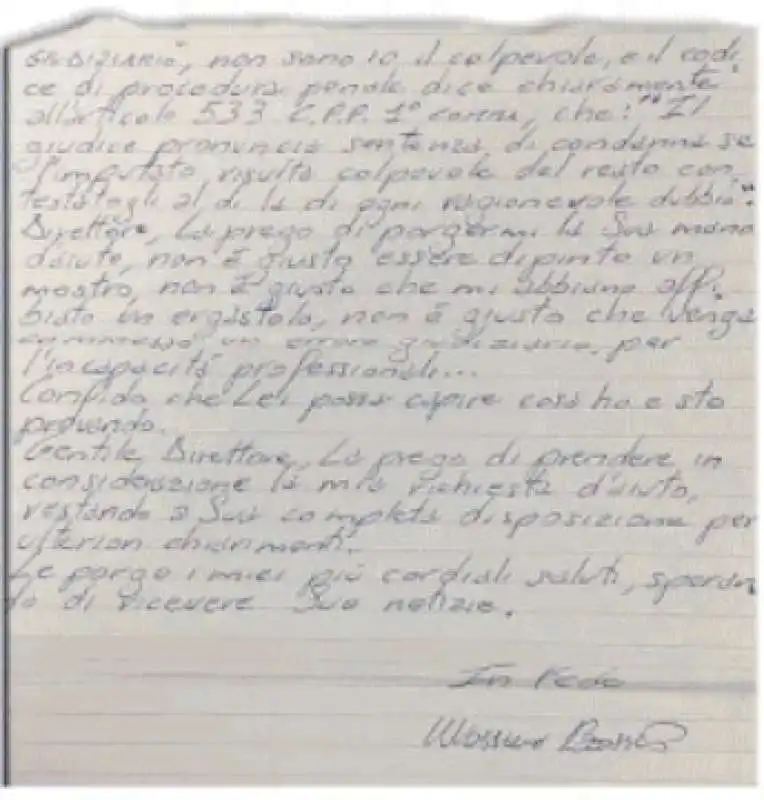 GIUDIZIARIO, non sono io il colpevole, e il codi
ce di procedura penale dice chiaramente
all'articolo 533 C.P.P. 1° comma, che: "Il
giudice pronuncia sentenza di condanna se
l'imputato risulta colpevole del reato con
testatogli al di là di ogni ragionevole dubbio".
Direttore, La prego di porgermi la Sua mano
d'aiuto, non è giusto essere dipinto un
mostro, non è giusto che mi abbiano affi
biato un ergastolo, non è giusto che venga
commesso un errore giudiziario per
l'incapacità professionali...
Confido che Lei possa capire cosa ho e sto
provando.
Gentile Direttore, La prego di prendere in
considerazione la mia richiesta d'aiuto,
restando a Sua completa disposizione per
ulteriori chiarimenti.
Le porgo i miei più cordiali saluti, speran
do di ricevere Sue notizie.
In Fede